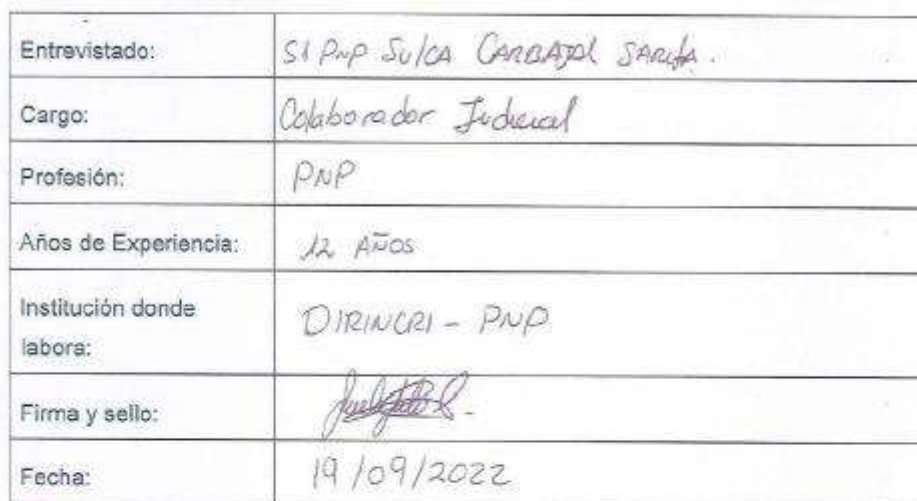 Entrevistado: S1 PNP SUlCA CARBAJAL SARITA.
Cargo: Colaborador Judicial
Profesión: PNP
Años de Experiencia: 12 AÑOS
Institución donde
labora: DIRINCRI - PNP
Firma y sello:
Fecha: 19/09/2022